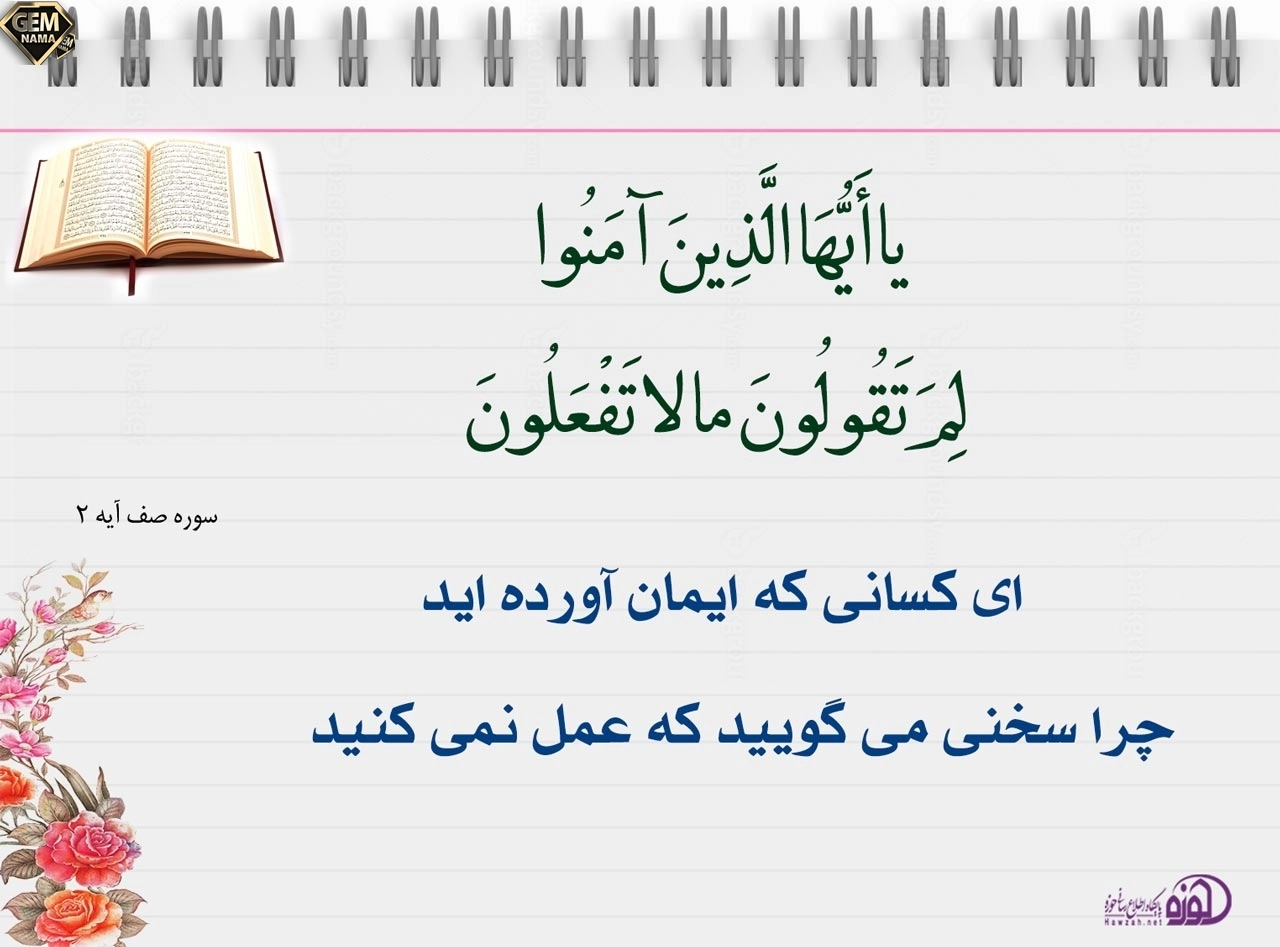 GEM
NAMA
يا أَيُّهَا الَّذِينَ آمَنُوا
لِمَ تَقُولُونَ ما لا تَفْعَلُونَ
سوره صف آیه ۲
ای کسانی که ایمان آورده اید
چرا سخنی می گویید که عمل نمی کنید
حوزه
پایگاه اطلاع رسانی حوزه
Hawzah.net